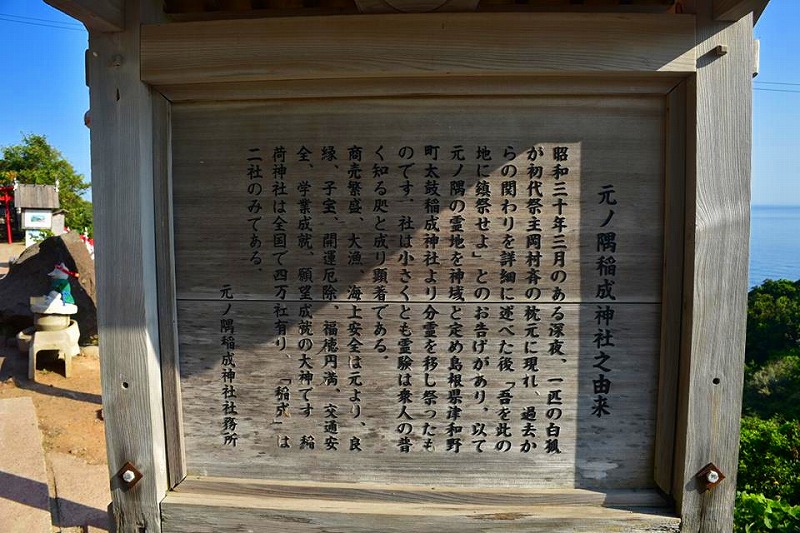 元ノ隅稲成神社之由来
昭和三十年三月のある深夜、一匹の白狐
が初代祭主岡村斉の枕元に現れ、過去か
らの関わりを詳細に述べた後「吾を此の
地に鎮祭せよ」とのお告げがあり、以て
元ノ隅の霊地を神域と定め島根県津和野
町太鼓稲成神社より分霊を移し祭ったも
のです。社は小さくとも霊験は衆人の昔
く知る処と成り顕着である。
商売繁盛、大漁、海上安全は元より、良
縁、子宝、開運厄除、福徳円満、交通安
全、学業成就、願望成就の大神です 稲
荷神社は全国で四万社有り、「稲成」は
二社のみである。
元ノ隅稲成神社社務所